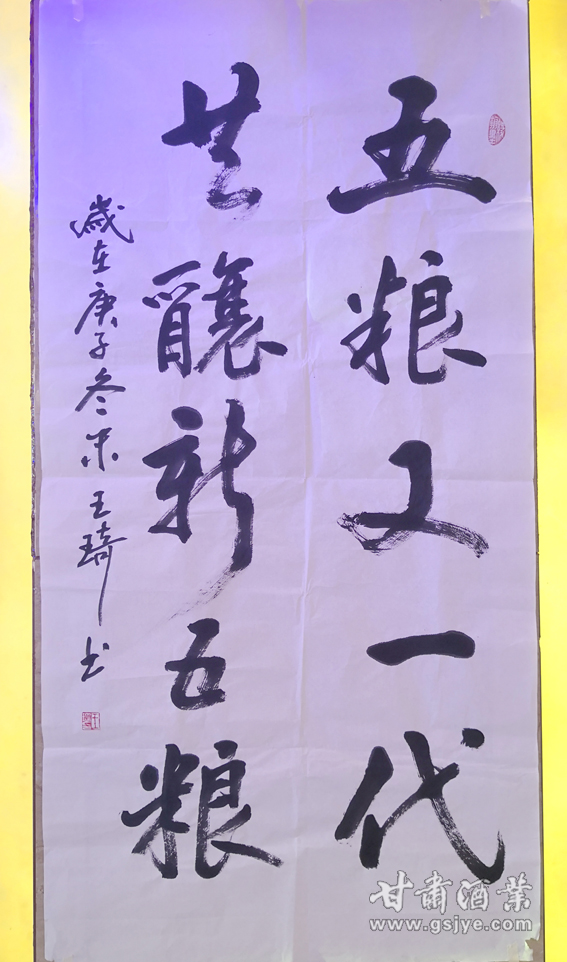 五粮又一代
共酿新五粮
歲在庚子冬末王琦书
甘肃酒业
www.gsjye.com